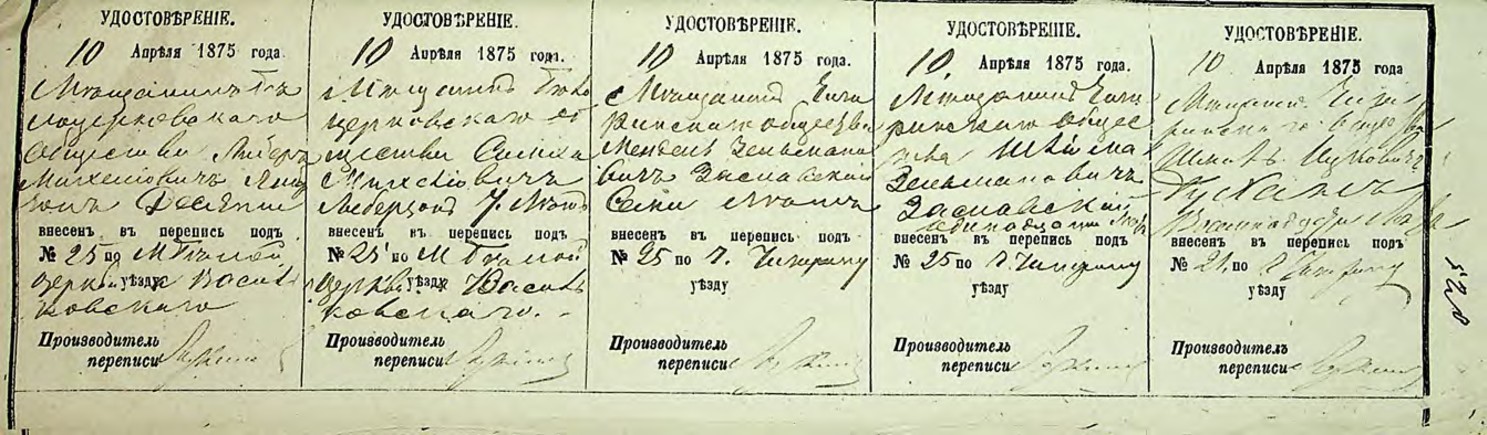 УДОСТОВѢРЕНІЕ.
10 Апрѣля 1875 года.
Мѣщанинъ Бѣ
лоцерковскаго
Общества Либеръ
Михелiовичъ
внесенъ въ перепись подъ
№ 25 по М Бѣлой
Церкви уѣзду Василь
ковскаго
Производитель
переписи
УДОСТОВѢРЕНІЕ.
10 Апрѣля 1875 года.
Мѣщанинъ Бѣло
церковскаго об
щества
Михелiовичъ
7 лѣтъ
внесенъ въ перепись подъ
№ 25 по М Бѣлой
Церкви уѣзду Василь
ковскаго.
Производитель
переписи
УДОСТОВѢРЕНІЕ.
10 Апрѣля 1875 года.
Мѣщанинъ Чиги
ринскаго общества
Мендель Зельмано
вичъ Заславскій
Семи лѣтъ
внесенъ въ перепись подъ
№ 25 по г. Чигирину
уѣзду
Производитель
переписи
УДОСТОВѢРЕНІЕ.
10. Апрѣля 1875 года.
Мѣщанинъ Чиги
ринскаго общес
тва
Зельмановичъ
Заславскій
одинадцати лѣтъ
внесенъ въ перепись подъ
№ 25 по г. Чигирину
уѣзду
Производитель
переписи
УДОСТОВѢРЕНІЕ.
10 Апрѣля 1875 года
Мѣщанинъ Чиги
ринскаго общества
Ицковичъ
внесенъ въ перепись подъ
№ 21. по г Чигирину
уѣзду
Производитель
переписи
520